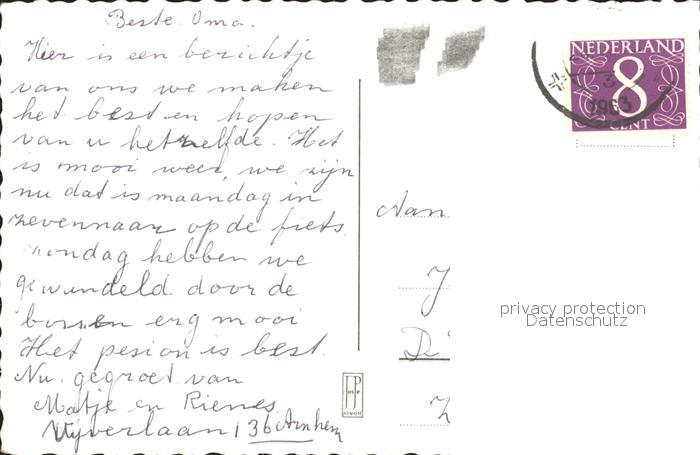 Beste Oma.
Hier is een berichtje
van ons we maken
het best en hopen
van u hetzelfde. Het
is mooi weer, we zijn
nu dat is maandag in
zevennaar op de fiets.
zondag hebben we
gewandeld door de
bossen erg mooi
Het pesion is best.
Nu. gegroet van
Matje en Rienes
Vijverlaan 136 Arnhem
NEDERLAND
8
CENT
1963
Aan
J
De
Z
privacy protection
Datenschutz